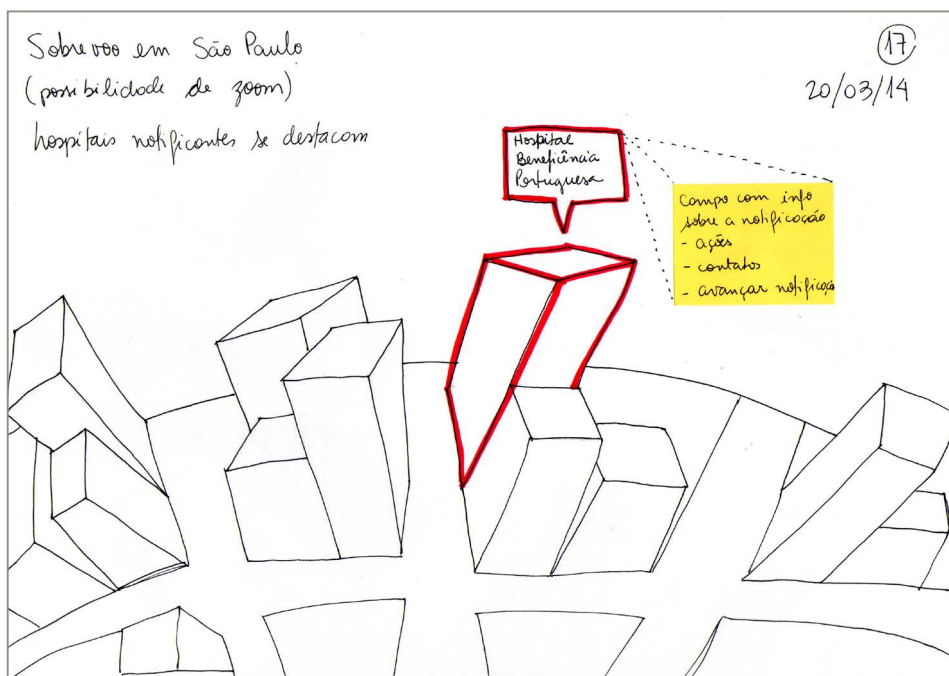 Sobrevoo em São Paulo
(possibilidade de zoom)
hospitais notificantes se destacam
17
20/03/14
Hospital
Beneficência
Portuguesa
Campo com info
sobre a notificação
- ações
- contatos
- avançar notificação